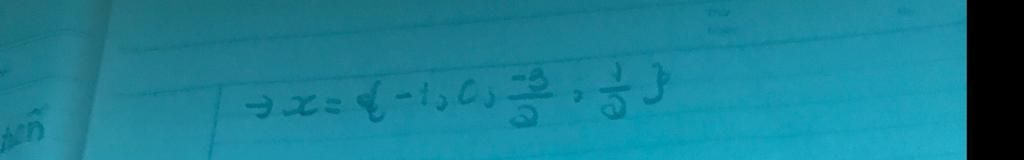 → x = { -1, 0, \frac{-3}{2}, \frac{1}{2} }